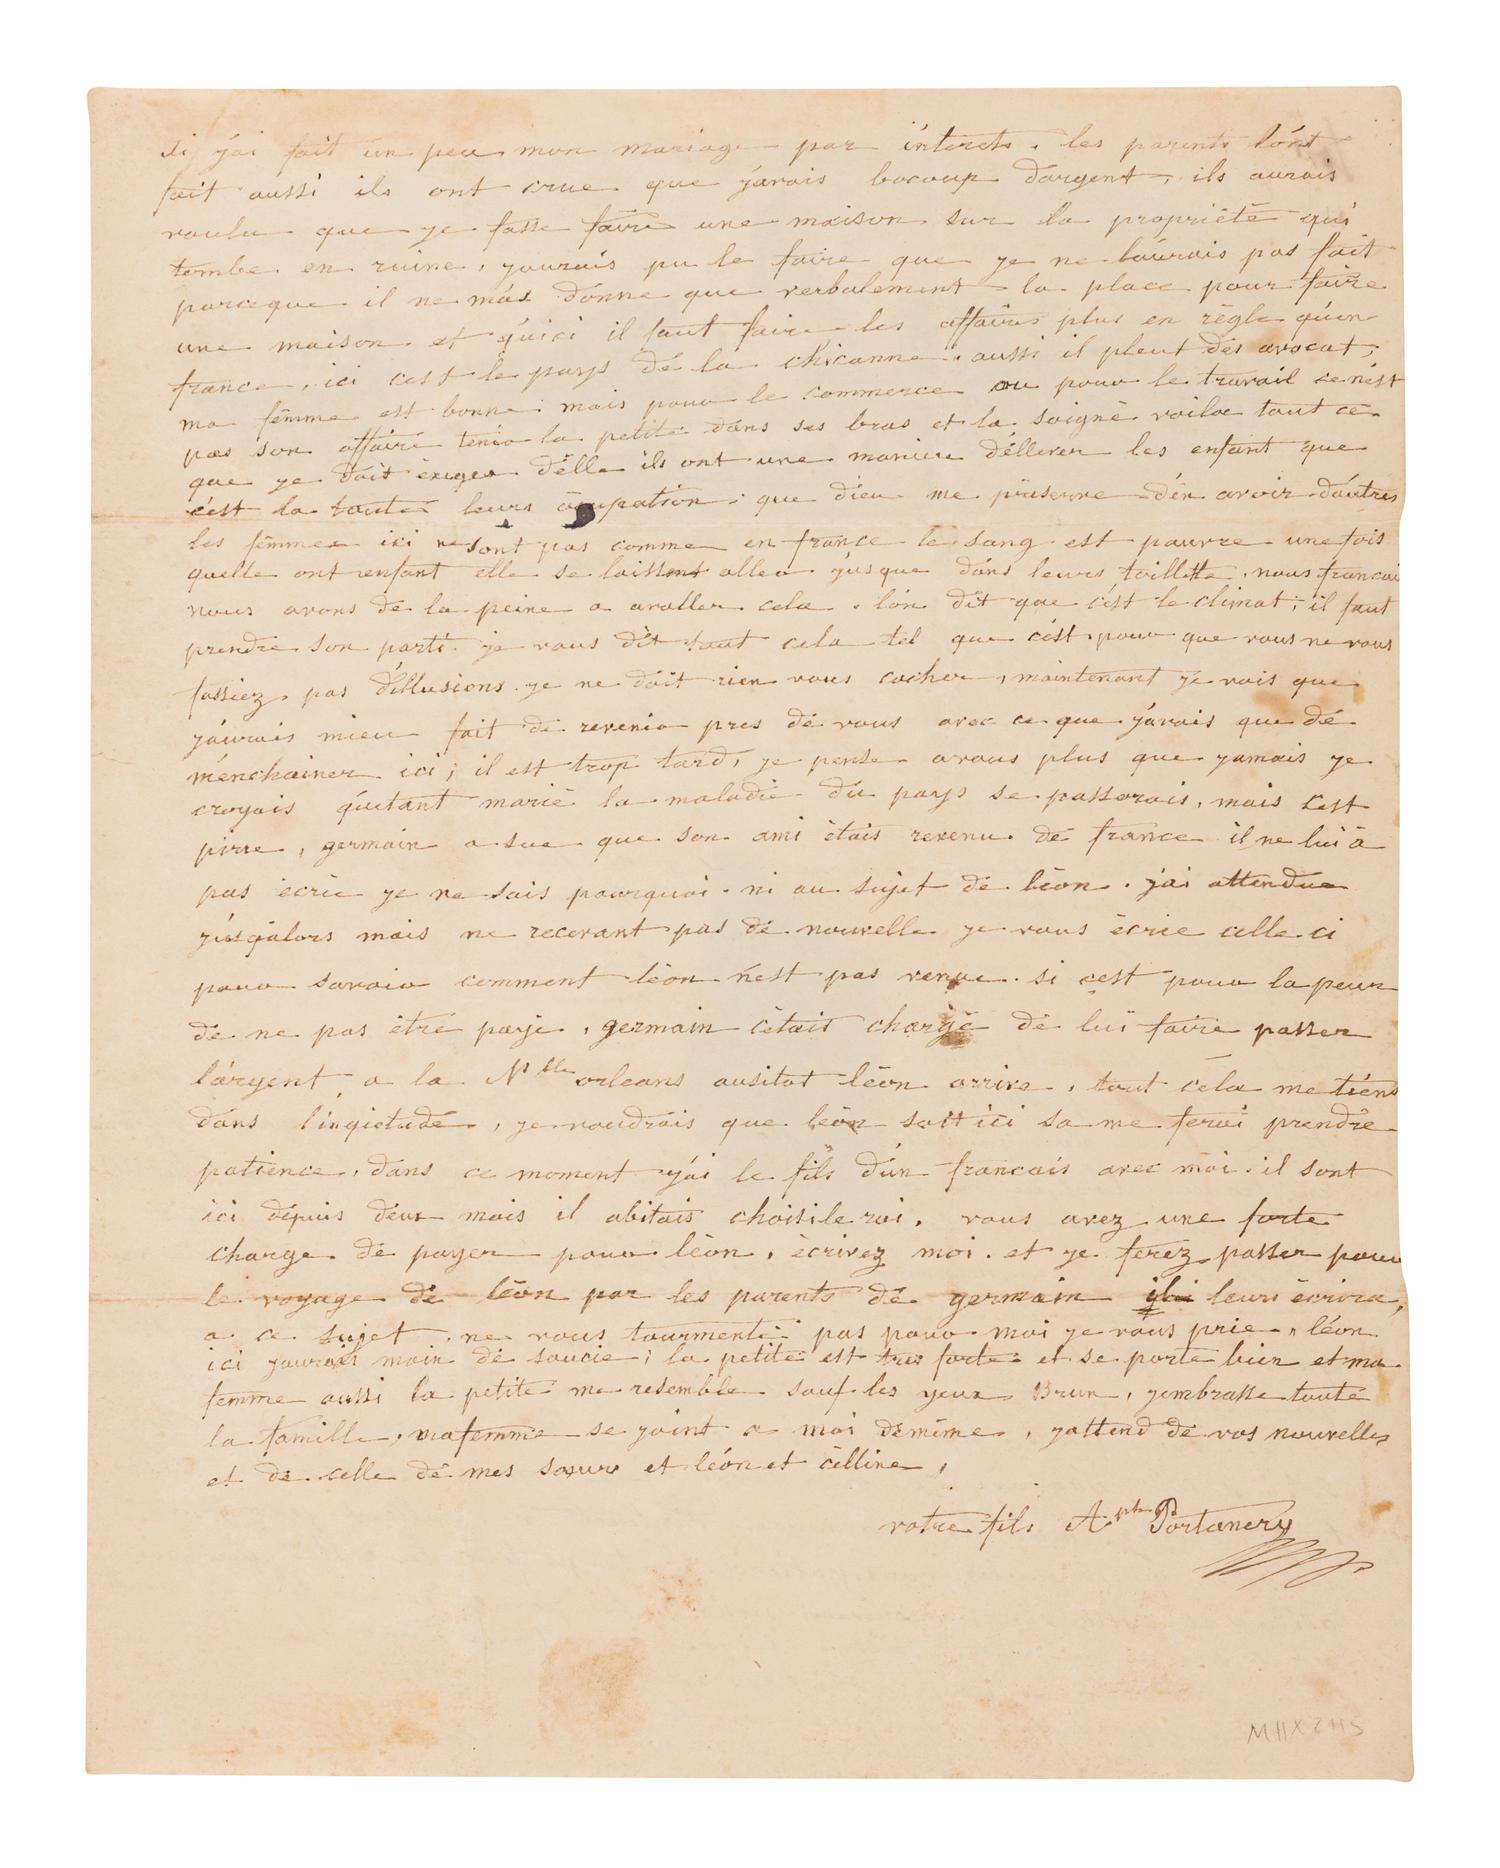 si j'ai fait un peu mon mariage par interets, les parents l'ont
fait aussi ils ont crue que j'avais bocoup d'argent, ils aurais
voulu que je fasse faire une maison sur la propriété qui
tombe en ruine, jaurais pu le faire que je ne l'aurais pas fait
parceque il ne m'as donne que verbalement la place pour faire
une maison et qu'ici il faut faire les affaires plus en règle qu'en
france, ici c'est le pays de la chicanne, aussi il pleut des avocat,
ma fémme est bonne mais pour le commerce ou pour le travail ce n'est
pas son affaire tenir la petite dans ses bras et la soigné voila tout ce
que je doit exiger d'elle ils ont une maniere d'ellever les enfant que
c'est la toute leurs ocupation, que dieu me préserve d'en avoir d'autres
les fémmes ici ne sont pas comme en france le sang est pauvre une fois
quelle ont enfant elle se laissent aller jusque dans leurs toillette, nous francai
nous avons de la peine a avaller cela, l'on dit que c'est le climat, il faut
prendre son parti je vous dit tout cela tel que c'est pour que vous ne vous
fassiez pas d'illusions je ne doit rien vous cacher, maintenant je vois que
j'aurais mieu fait de revenir pres de vous avec ce que j'avais que de
m'enchainer ici; il est trop tard, je pense a vous plus que jamais je
croyais qu'etant marié la maladie du pays se passerais, mais c'est
pirre, germain a sue que son ami étais revenu de france il ne lui à
pas ecrie je ne sais pourquoi ni au sujet de léon. j'ai attendue
jusqalors mais ne recevant pas de nouvelle je vous écrie celle ci
pour savoir comment léon n'est pas venue. si cest pour la peur
de ne pas étre paye, germain cétait chargé de lui faire passer
l'argent a la Nlle orleans ausitot léon arrive, tout céla me tiens
dans l'inqietude, je voudrais que léon soit ici sa me ferai prendre
patience, dans ce moment j'ai le fils d'un francais avec moi il sont
ici depuis deux mois il abitais choisileroi, vous avez une forte
charge de payer pour léon, écrivez moi et je ferez passer pour
le voyage de léon par les parents de germain leurs écrira,
a ce sujet, ne vous tourmenté pas pour moi je vous prie, léon
ici jaurais moin de soucie; la petite est tres forte et se porte bien et ma
femme aussi la petite me resemble sauf les yeux Brun, jembrasse toute
la famille, ma femme se joint a moi deméme, jattend de vos nouvelles
et de celle de mes soeurs et léon et célline,
votre fils Aph Portanery
MHX2115